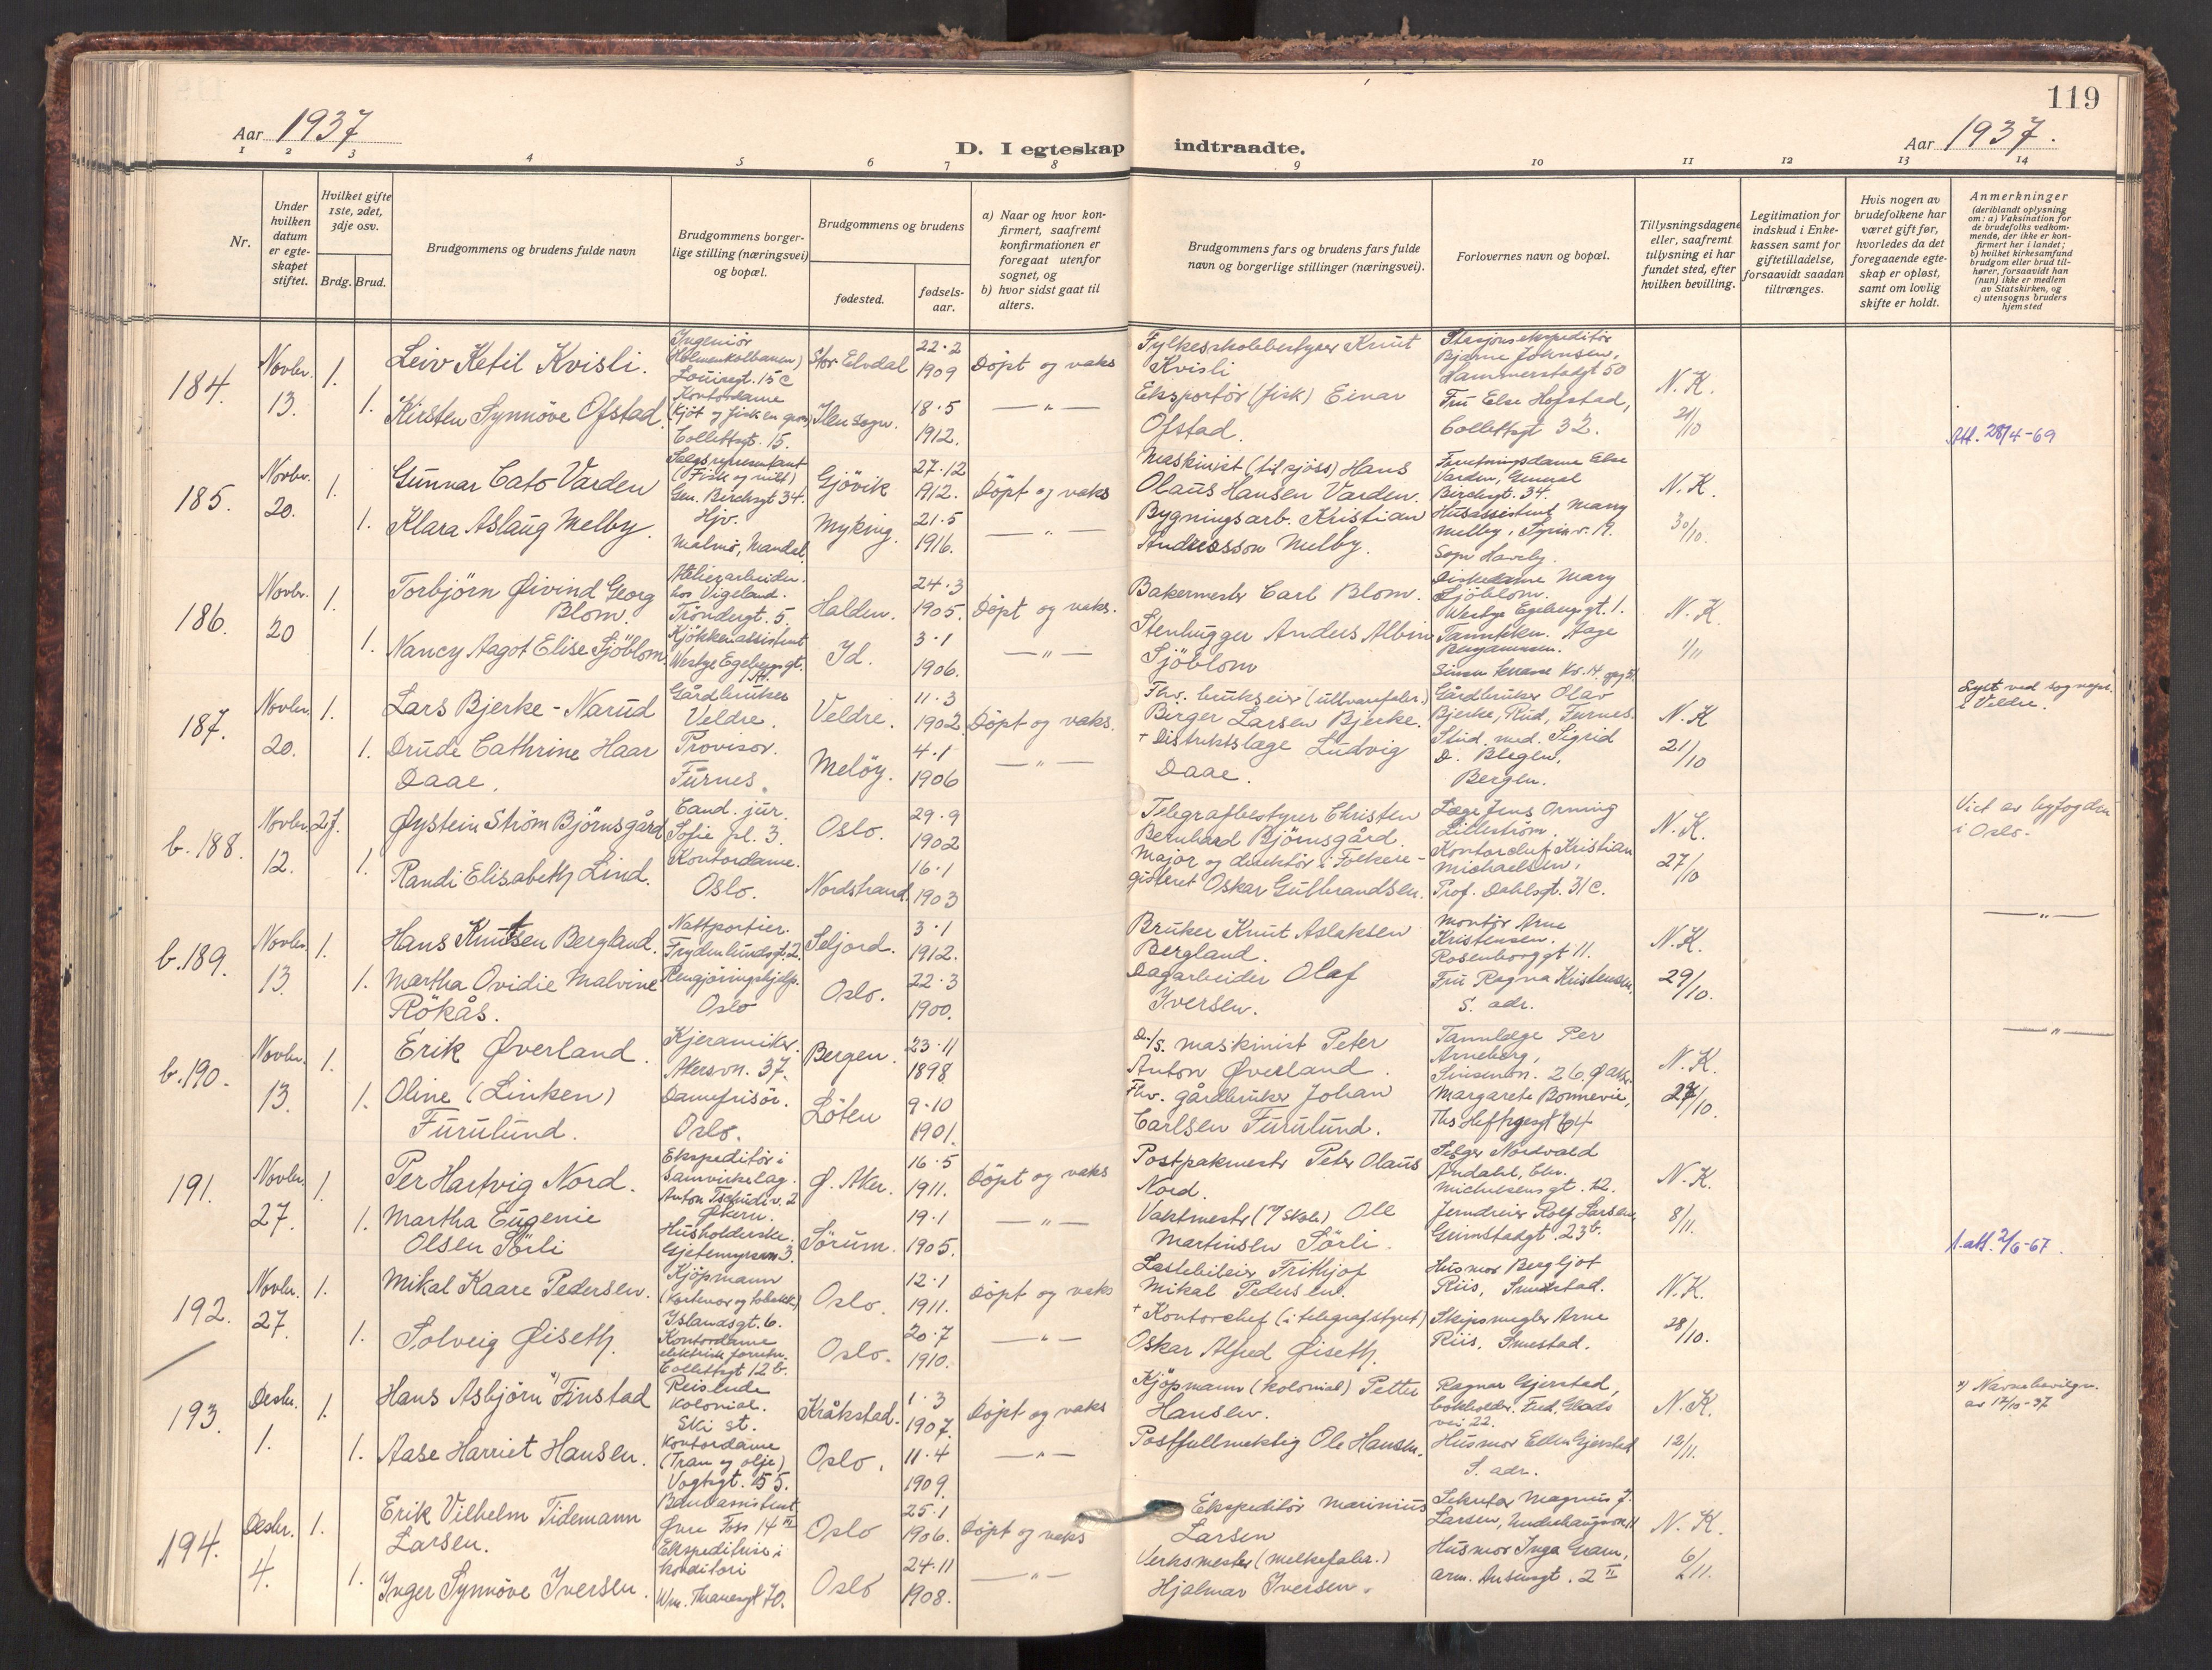 119
Aar 1937
D. I egteskap indtraadte.
Aar 1937.
1 2 3 4 5 6 7 8 9 10 11 12 13 14
Nr.
Under
hvilken
datum
er egte-
skapet
stiftet.
Hvilket gifte
1ste, 2det,
3dje osv.
Brdg. Brud.
Brudgommens og brudens fulde navn
Brudgommens borger-
lige stilling (næringsvei)
og bopæl.
Brudgommens og brudens
fødested.
fødsels-
aar.
a) Naar og hvor kon-
firmert, saafremt
konfirmationen er
foregaat utenfor
sognet, og
b) hvor sidst gaat til
alters.
Brudgommens fars og brudens fars fulde
navn og borgerlige stillinger (næringsvei).
Forlovernes navn og bopæl.
Tillysningsdagene
eller, saafremt
tillysning ei har
fundet sted, efter
hvilken bevilling.
Legitimation for
indskud i Enke-
kassen samt for
giftetilladelse,
forsaavidt saadan
tiltrænges.
Hvis nogen av
brudefolkene har
været gift før,
hvorledes da det
foregaaende egte-
skap er opløst,
samt om lovlig
skifte er holdt.
Anmerkninger
(deriblandt oplysning
om: a) Vaksination for
de brudefolks vedkom-
mende, der ikke er kon-
firmert her i landet;
b) hvilket kirkesamfund
brudgom eller brud til-
hører, forsaavidt han
(hun) ikke er medlem
av Statskirken, og
c) utensogns bruders
hjemsted
184.
Novbr.
13.
1.
1.
Leiv Ketil Kvisli.
Kirsten Synnöve Ofstad.
Ingeniör
(Holmenkolbanen)
Louisegt. 15 c
Kontordame
Collettsgt. 15.
Stor Elvdal
22.2
1909
18.5
1912.
Döpt og vaks
— " —
Fylkesskolebestyrer Knut
Kvisli
Eksportör (fisk) Einar
Ofstad.
Stasjonsekspeditör
Bjarne Johnsen,
Hammerstadgt 50
Fru Else Hofstad,
Collettsgt 32.
N.K.
/10
Att. 28/4-69
185.
Novbr.
20.
1.
1.
Gunnar Cato Varden
Klara Aslaug Melby.
Salgsrepresentant
(Fisk og vilt)
Gen. Birchsgt 34.
Hjv.
Malmö, Mandal
Gjövik
Myking.
27.12
1912.
21.5
1916.
Döpt og vaks
— " —
Maskinist (til sjöss) Hans
Olaus Hansen Varden.
Bygningsarb. Kristian
Andreasson Melby.
Forretningsdame Else
Varden, General
Birchsgt. 34.
Husassistent Marry
Melby, 19.
N.K.
30/10.
186.
Novbr.
20
1.
1.
Torbjörn Øivind Georg
Blom.
Nancy Aagot Elise Sjöblom
Atelierarbeider
hos Vigeland.
Tröndergt. 5.
Kjökkenassistent
Westye Egebergsgt.
Halden.
Id.
24.3
1905.
3.1
1906.
Döpt og vaks.
— " —
Bakermester Carl Blom.
Stenhugger Anders Albin
Sjöblom
Diskedame Mary
Sjöblom.
Westye Egebergsgt. 1.
Aage
N.K.
1/11
187.
Novbr.
20.
1.
1.
Lars Bjerke-Narud
Drude Cathrine Haar
Daae.
Gårdbruker
Veldre.
Provisor.
Furnes.
Veldre.
Melöy.
11.3
1902.
4.1
1906
Döpt og vaks.
— " —
Fhv. brukseier (ullvarefabr.)
Birger Larsen Bjerke.
+ Distriktslæge Ludvig
Daae.
Gårdbruker Olav
Bjerke, Rud, Furnes.
Stud. med. Sigrid
D. Blegen,
Bergen.
N.K
21/10
Lyst ved sognepr.
i Veldre.
b. 188.
Novbr.
12.
2 f.
1.
Øystein Ström Björnsgård
Randi Elisabeth Lind.
Cand. jur.
Sofie pl. 3.
Kontordame.
Oslo.
Oslo.
Nordstrand
29.9
1902
16.1
1903
Telegrafbestyrer Christen
Bernhard Björnsgård.
Major og direktör i Folkere-
gisteret Oskar Gulbrandsen.
Læge Jens Orning
Lilleström.
Kontorchef Kristian
Michaelsen,
Prof. Dahlsgt. 31 c.
N.K.
27/10
Viet av byfogden
i Oslo.
b. 189.
Novbr.
13.
1.
1.
Hans Knutsen Bergland.
Martha Ovidie Malvine
Rökås.
Nattportier.
Frydenlundsgt. 2.
Rengjöringshjelp.
Oslo
Seljord.
Oslo.
3.1
1912.
22.3
1900.
Bruker Knut Aslaksen
Bergland.
Dagarbeider Olaf
Iversen.
Montör Arne
Kristensen.
Rosenborggt 11.
Fru Ragna Kristensen,
S. adr.
N.K.
29/10.
— " —
b. 190.
Novbr.
13.
1.
1.
Erik Øverland.
Oline (Linken)
Furulund.
Kjeramiker.
Akersvn. 37.
Damefrisör.
Oslo.
Bergen.
Löten
23.11
1898
9.10
1901.
D./s. maskinist Peter
Anton Øverland.
Fhv. gårdbruker Johan
Carlsen Furulund.
Tannlæge Per
Arneberg,
Sinsenvn. 26, Ø Aker.
Margarete Bonnevie,
Ths Heftyesgt 64
N.K.
/10.
— " —
191.
Novbr.
27.
1.
1.
Per Hartvig Nord.
Martha Eugenie
Olsen Sörli
Ekspeditör i
Samvirkelag.
Anton Tschudiv. 2
Økern.
Husholderske.
Gjetemyrsvn 3.
Ø. Aker.
Sörum.
16.5
1911.
19.1
1905.
Döpt og vaks
— " —
Postpakmester Peter Olaus
Nord.
Vaktmester Ole
Martinsen Sörli.
Selger Nordvald
Andahl, Chr.
Michelsensgt. 12.
Jerndreier Rolf Larsen,
Grimstadgt. 23 b.
N.K.
8/11.
1 att. 2/6-67.
192.
Novbr.
27.
1.
1.
Mikal Kaare Pedersen.
Solveig Øiseth.
Kjöpmann
Islandsgt. 6.
Kontordame
elektrisk forretn.
Collettsgt 12 b.
Oslo.
Oslo.
12.1
1911.
20.7
1910.
Döpt og vaks
— " —
Lastebileier Frithjof
Mikal Pedersen.
+ Kontorchef (i telegrafstyret)
Oskar Alfred Øiseth.
Husmor Bergljot
Riis, Smestad.
Skipsmegler Arne
Riis, Smestad.
N.K.
28/10.
193.
Desbr.
1.
1.
1.
Hans Asbjörn Finstad
Aase Harriet Hansen.
Reisende
kolonial.
Ski st.
Kontordame
(Tran og olje)
Vogtsgt. 55.
Kråkstad.
Oslo.
1.3
1907.
11.4
1909.
Döpt og vaks
— " —
Kjöpmann (kolonial) Petter
Hansen.
Postfullmektig Ole Hansen.
Ragnar Gjerstad,
bokholder. Fred. Glads
vei 22.
Husmor Ellen Gjerstad
S. adr.
N.K.
12/11.
x) Navnebevilgn.
av 12/10-37
194.
Desbr.
4.
1.
1.
Erik Vilhelm Tidemann
Larsen.
Inger Synnöve Iversen.
Bankassistent
Øvre Foss 14 III
Ekspeditrise i
konditori
Wm. Thranesgt 70.
Oslo
Oslo
25.1
1906.
24.11
1908.
Döpt og vaks
— " —
Ekspeditör Marinius
Larsen
Verksmester (melkefabr.)
Hjalmar Iversen.
Sekretær Magnus J.
Larsen,
Husmor Inga Gram,
Arm. Ansensgt. 2 II
N.K.
6/11.